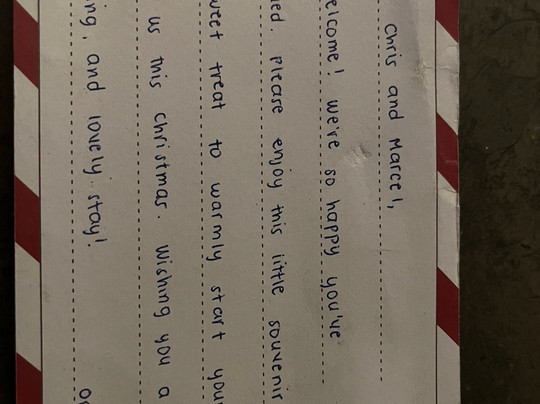 Chris and Marcel,
elcome! we're so happy you've
ed. Please enjoy this little souvenir
weet treat to warmly start you
us this christmas. Wishing you a
ng, and lovely stay!